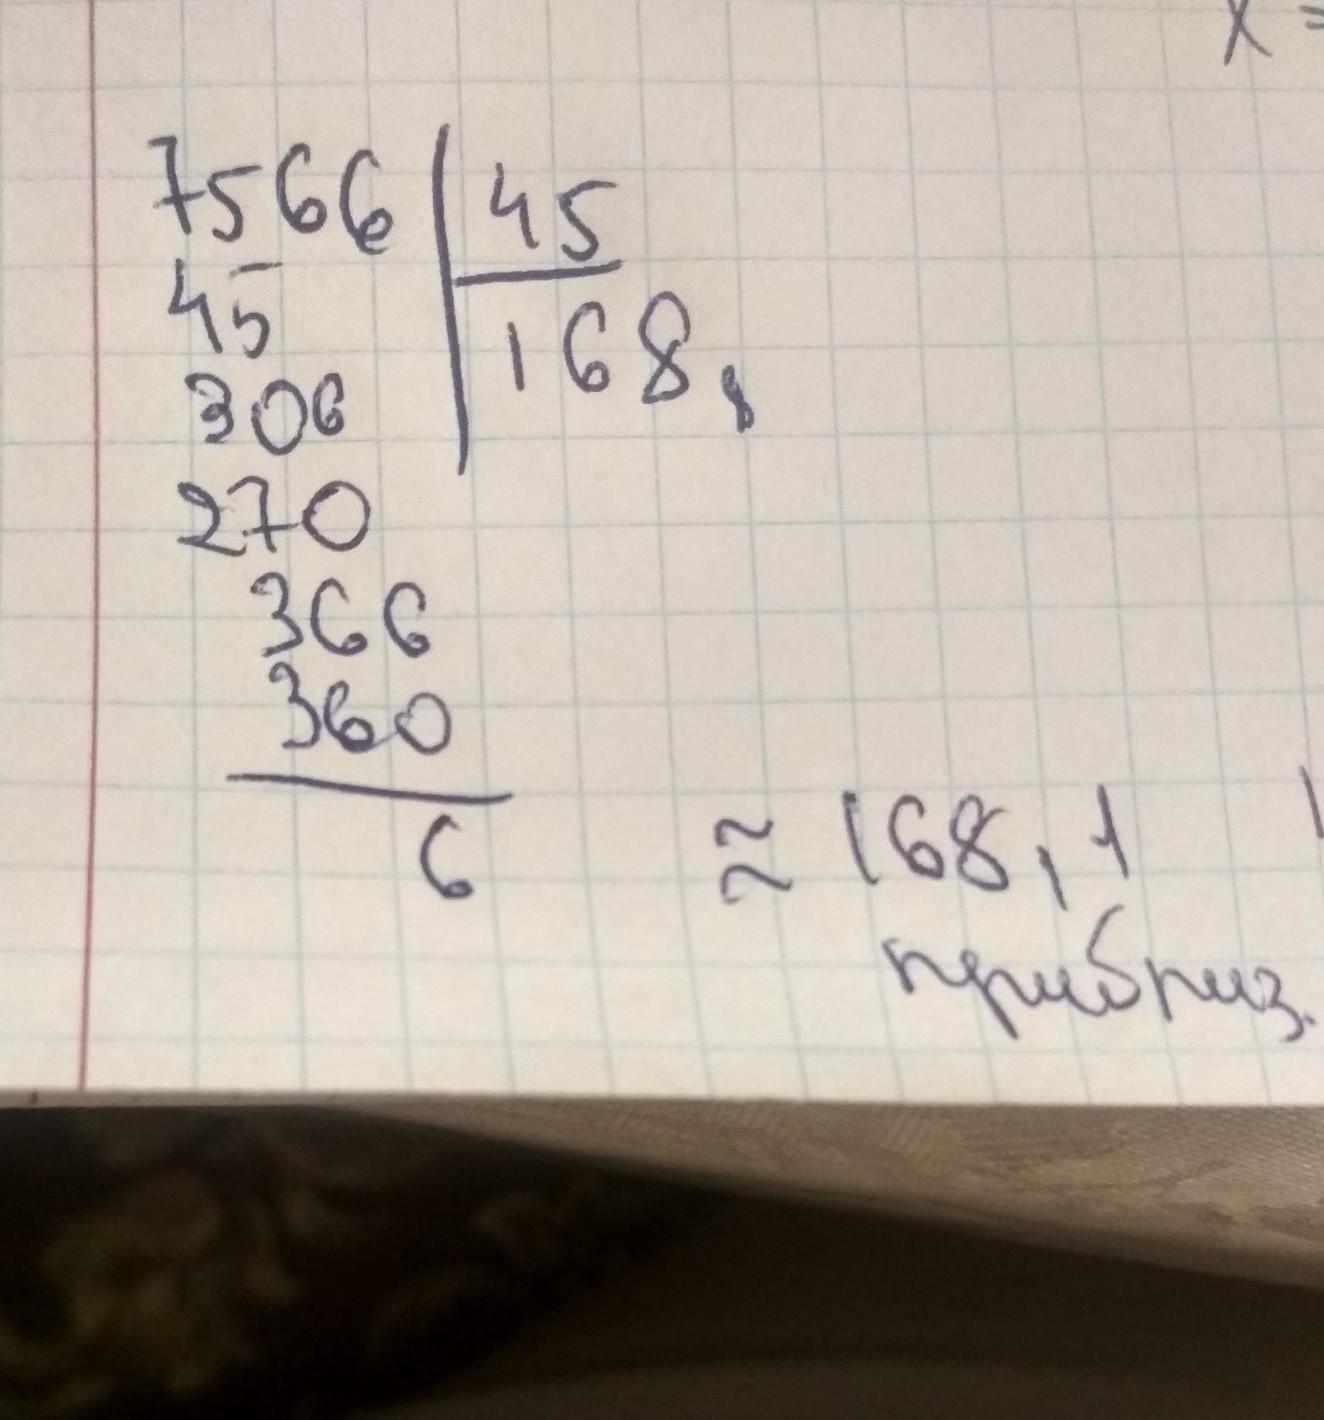 x =
7566 45
45 168,
306
270
366
360
6
≈ 168,1
приблиз.